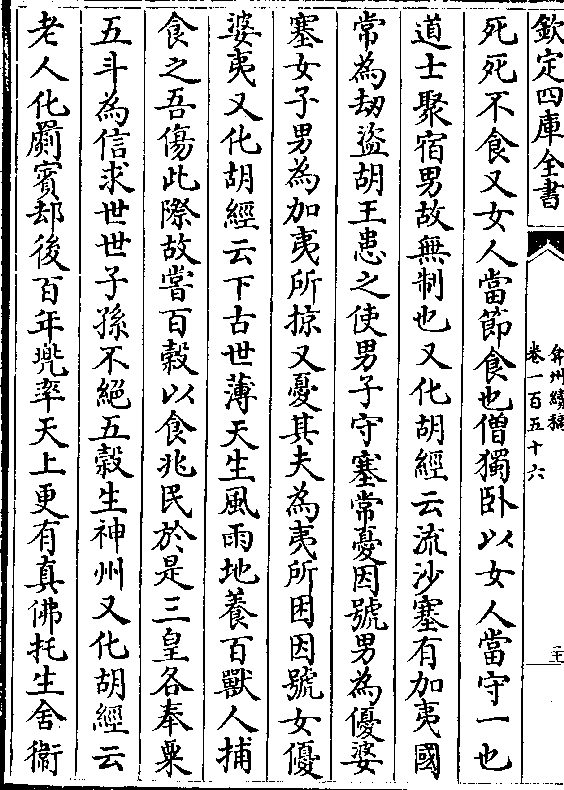 欽定四庫全書
弇州續稿
卷一百五十六
死死不食又女人當節食也僧獨臥以女人當守一也
道士聚宿男故無制也又化胡經云流沙塞有加夷國
常為劫盜胡王患之使男子守塞常憂因號男為優婆
塞女子男為加夷所掠又憂其夫為夷所困因號女優
婆夷又化胡經云下古世薄天生風雨地養百獸人捕
食之吾傷此際故嘗百穀以食兆民於是三皇各奉粟
五斗為信求世世子孫不絕五穀生神州又化胡經云
老人化罽賓却後百年兜率天上更有真佛托生舍衞